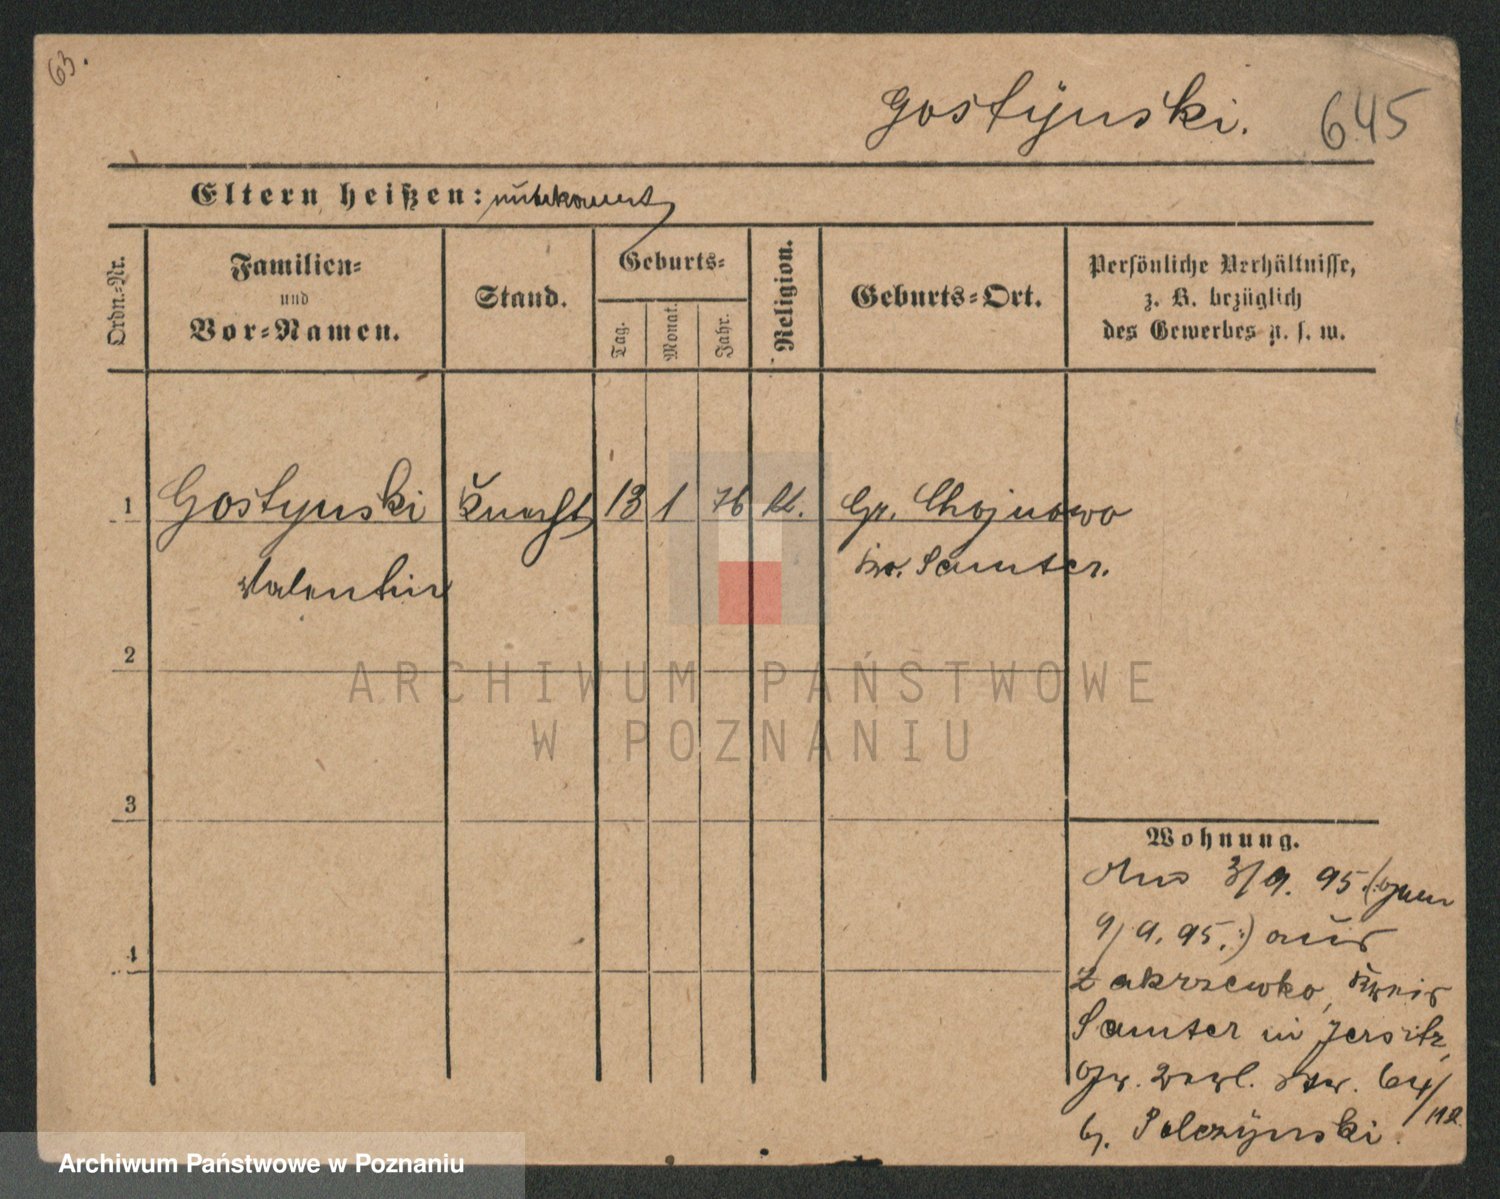 63.
Gostÿnski. 645
Eltern heißen: unbekannt
Ordn.-Nr.
Familien-
und
Vor-Namen.
Stand.
Geburts-
Tag.
Monat.
Jahr.
Religion.
Geburts-Ort.
Persönliche Verhältnisse,
z. B. bezüglich
des Gewerbes u. s. w.
1 Gostynski Knecht 13 1 76 kt. Gr. Chojnowo
Valentin Kr. Samter.
2
ARCHIWUM PAŃSTWOWE
W POZNANIU
3
Wohnung.
3/9. 95.
9/9. 95.:) aus
4
Zakrzewko, Kreis
Samter in Jersitz,
64/
b. Polczÿnski.
Archiwum Państwowe w Poznaniu